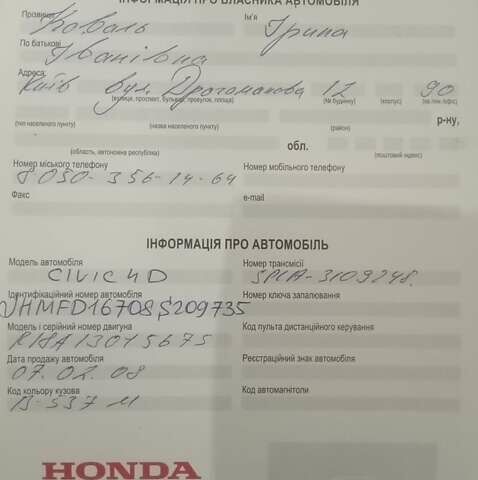 ІНФОРМАЦІЯ ПРО ВЛАСНИКА АВТОМОБІЛЯ
Прізвище Коваль Ім'я Ірина
По батькові Іванівна
Адреса: Київ вул. Драгоманова 12 90
(вулиця, проспект, бульвар, провулок, площа) (№ будинку) (корпус) (кв./кім./офіс)
р-ну,
(тип населеного пункту) (назва населеного пункту) (район)
обл.
(область, автономна республіка) (поштовий індекс)
Номер міського телефону Номер мобільного телефону
8 050-356-14-64
Факс e-mail
ІНФОРМАЦІЯ ПРО АВТОМОБІЛЬ
Модель автомобіля Номер трансмісії
CIVIC 4D SPCA-3109248.
Ідентифікаційний номер автомобіля Номер ключа запалювання
JHMFD16708S209735
Модель і серійний номер двигуна Код пульта дистанційного керування
R18A13015675
Дата продажу автомобіля Реєстраційний знак автомобіля
07.02.08
Код кольору кузова Код автомагнітоли
B-537 M
HONDA